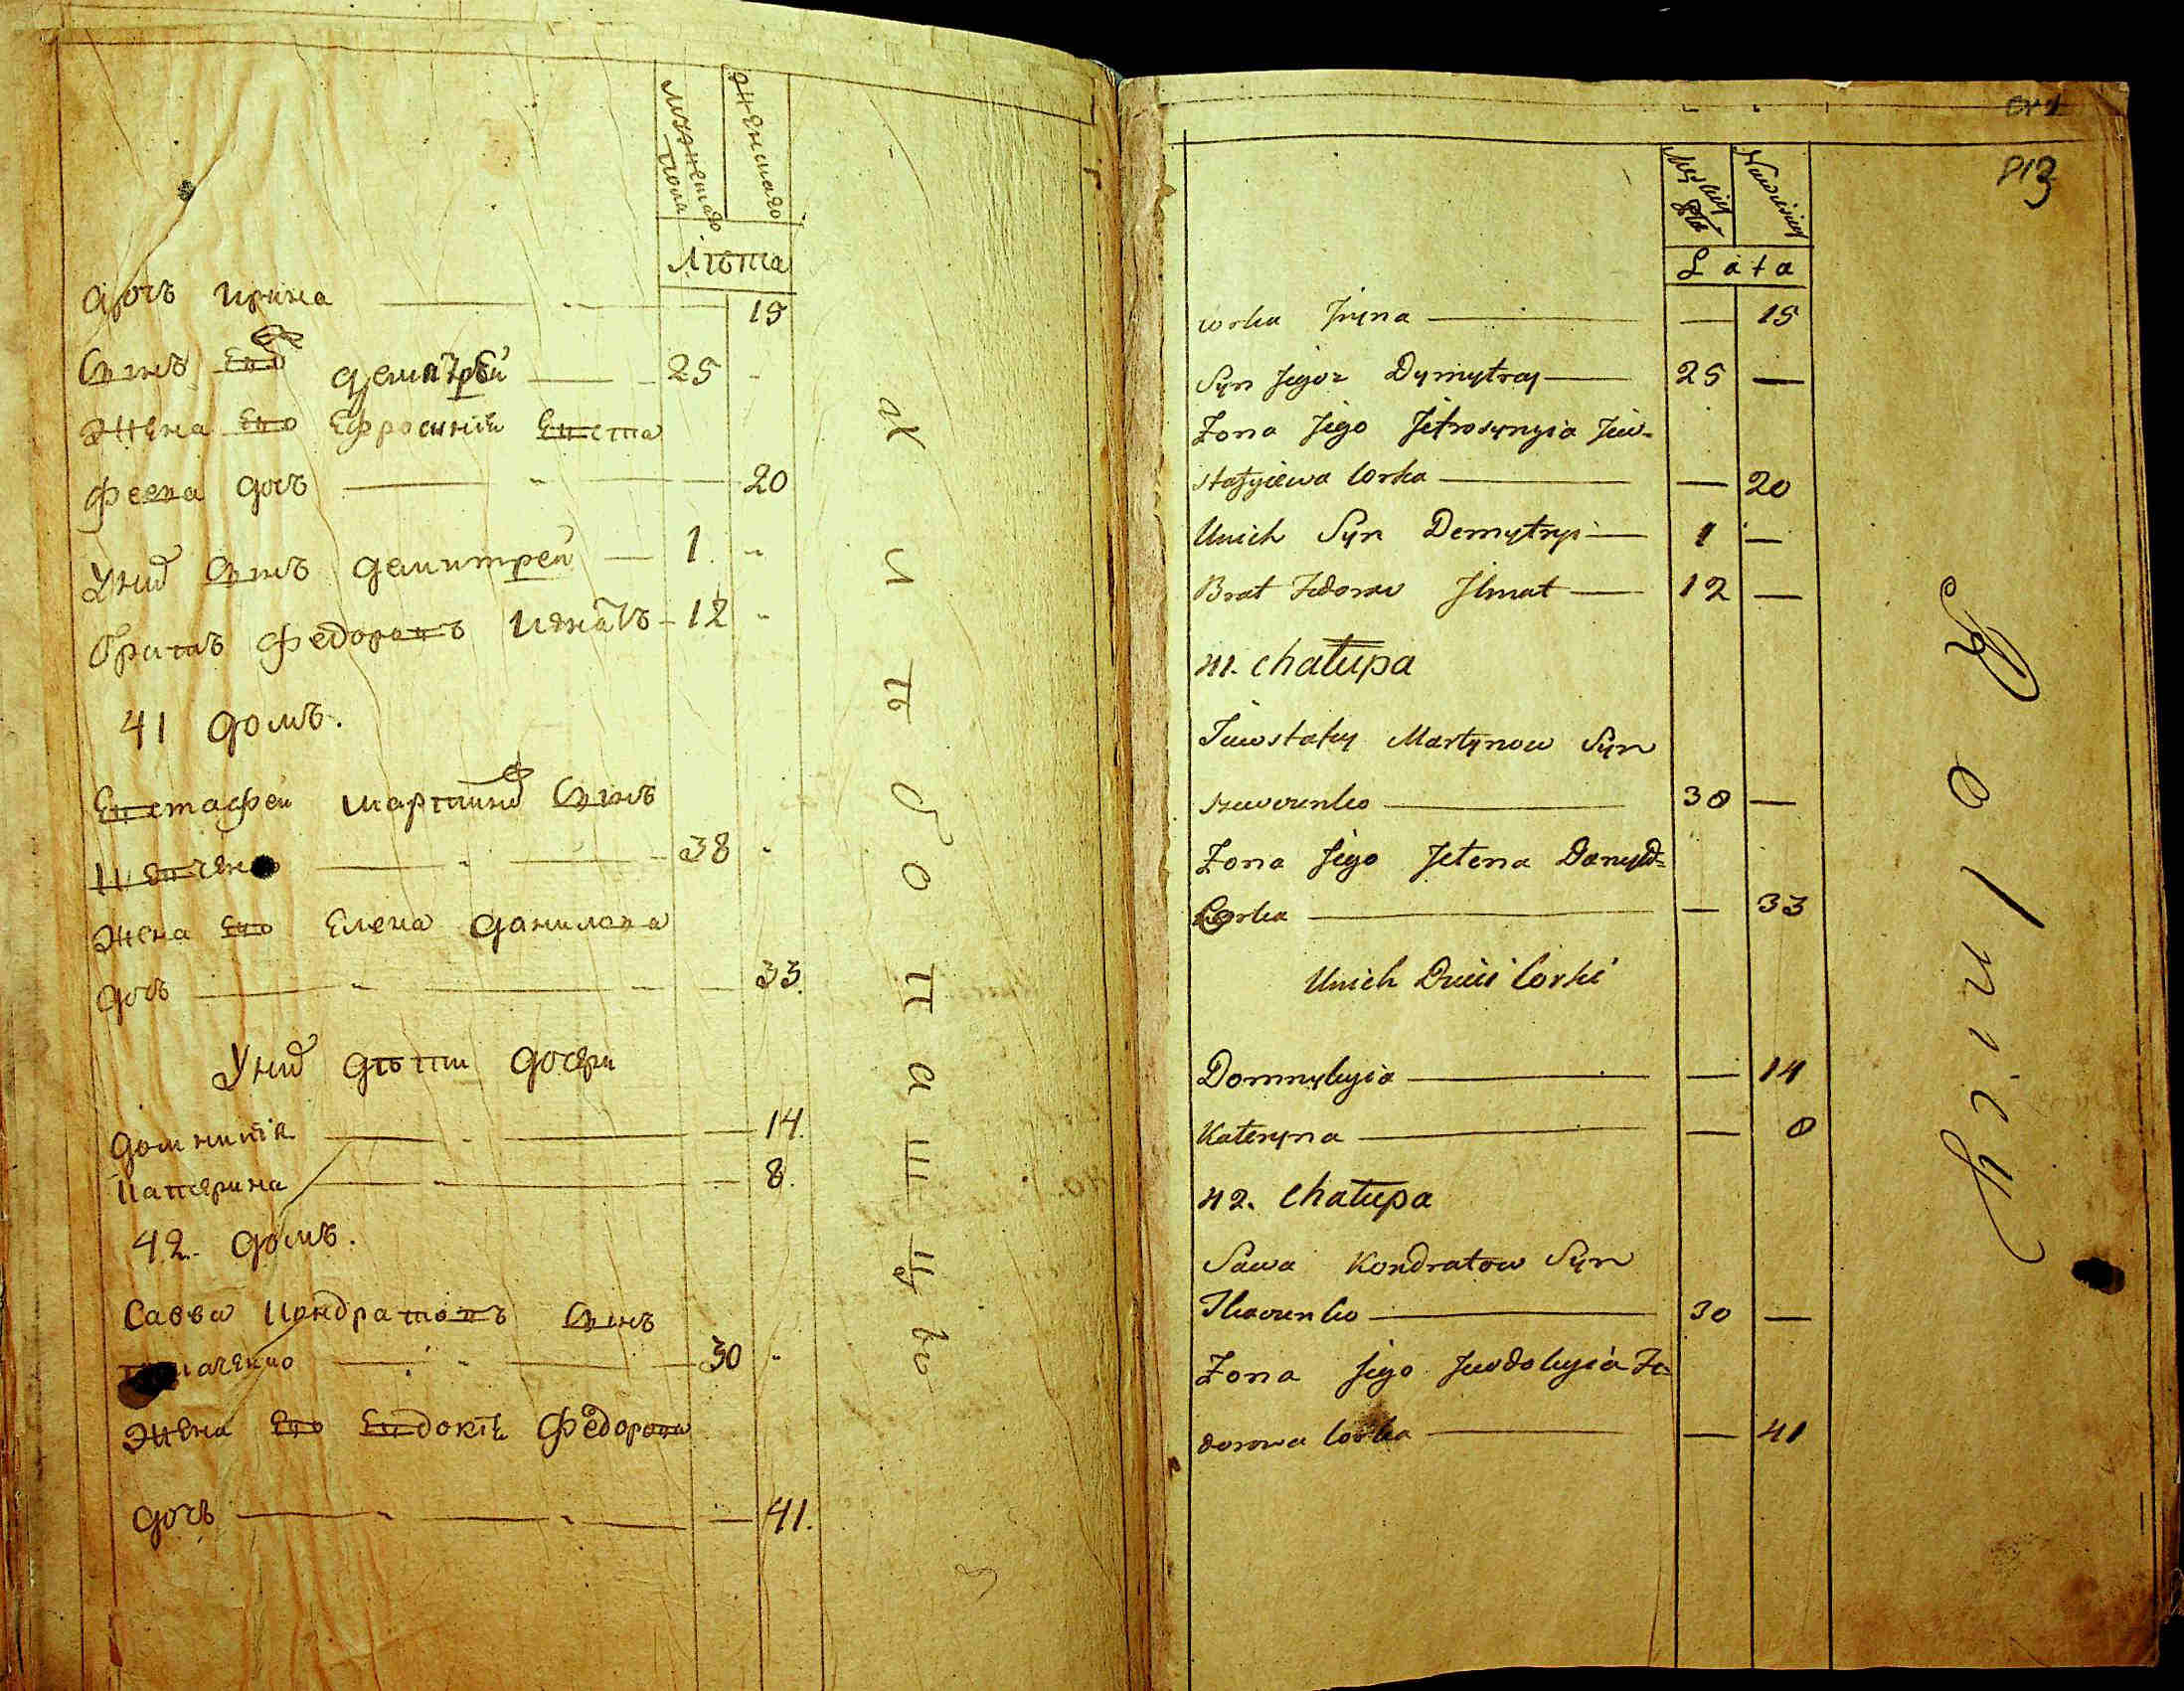 мужескаго пола
женскаго
лѣта
дочь Ирина — 15
Сынъ его Демитрей — 25 -
Жена его Ефросинія Евста
феева дочь — 20
У них Сынъ Демитрей — 1. -
Братъ Федоровъ Игнатъ - 12 -
41 домъ.
Евстафей Мартинов Сынъ
Шевченко — 38 -
Жена его Елена Данилова
дочь — 33.
У них дѣти дочери
Домникія — 14.
Катерина — 8.
42. домъ.
Савва Кондратовъ Сынъ
Ткаченко — 30 -
Жена его Евдокія Федорова
дочь — 41.
Хлѣбопашецъ
013
Męskiej płci
Niewieściej
Lata
corka Jryna — — 15
Syn Jegoz Dymytrey — 25 —
Zona Jego Jefrosynyia Jew-
stafyiewa Corka — — 20
Unich Syn Demytryi — 1 —
Brat Fedorow Jhnat — 12 —
41. Chałupa
Jewstafey Martynow Syn
Szewczenko — 38 —
Zona Jego Jełena Danyło-
Corka — — 33
Unich Dzieci Corki
Domnykyia — — 14
Kateryna — — 8
42. Chałupa
Sawa Kondratow Syn
Tkaczenko — 30 —
Zona Jego Jewdokyia Fe-
dorowa Corka — — 41
Rolnicy